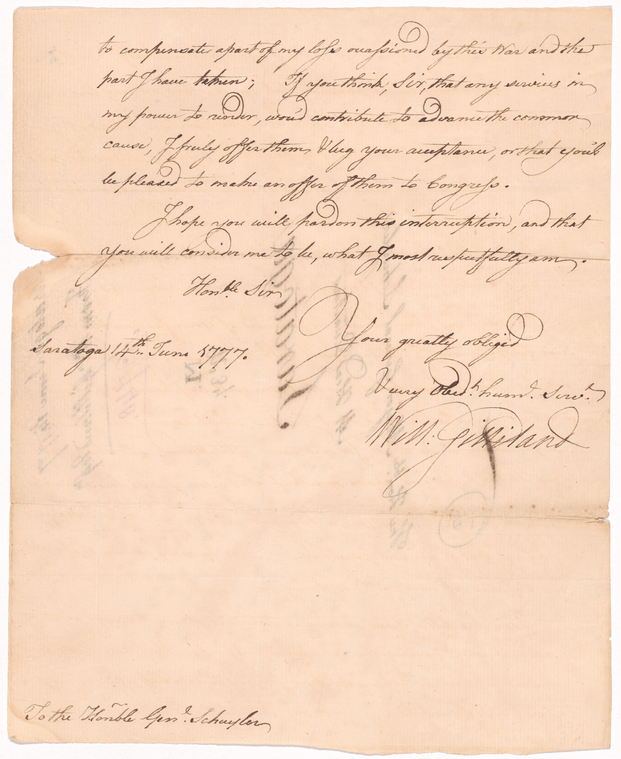 to compensate a part of my loss occassioned by this War and the
part I have taken; If you think, Sir, that any services in
my power to render, wou'd contribute to advance the common
cause, I freely offer them, & beg your acceptance, or that you'll
be pleased to make an offer of them to Congress.
I hope you will pardon this interruption, and that
you will consider me to be, what I most respectfully am,
Hon.ble Sir
Your greatly obliged
Saratoga 14th June 1777.
& very Obed.t hum.e Serv.t
Will. Gilliland
To the Hon.ble Gen.l Schuyler